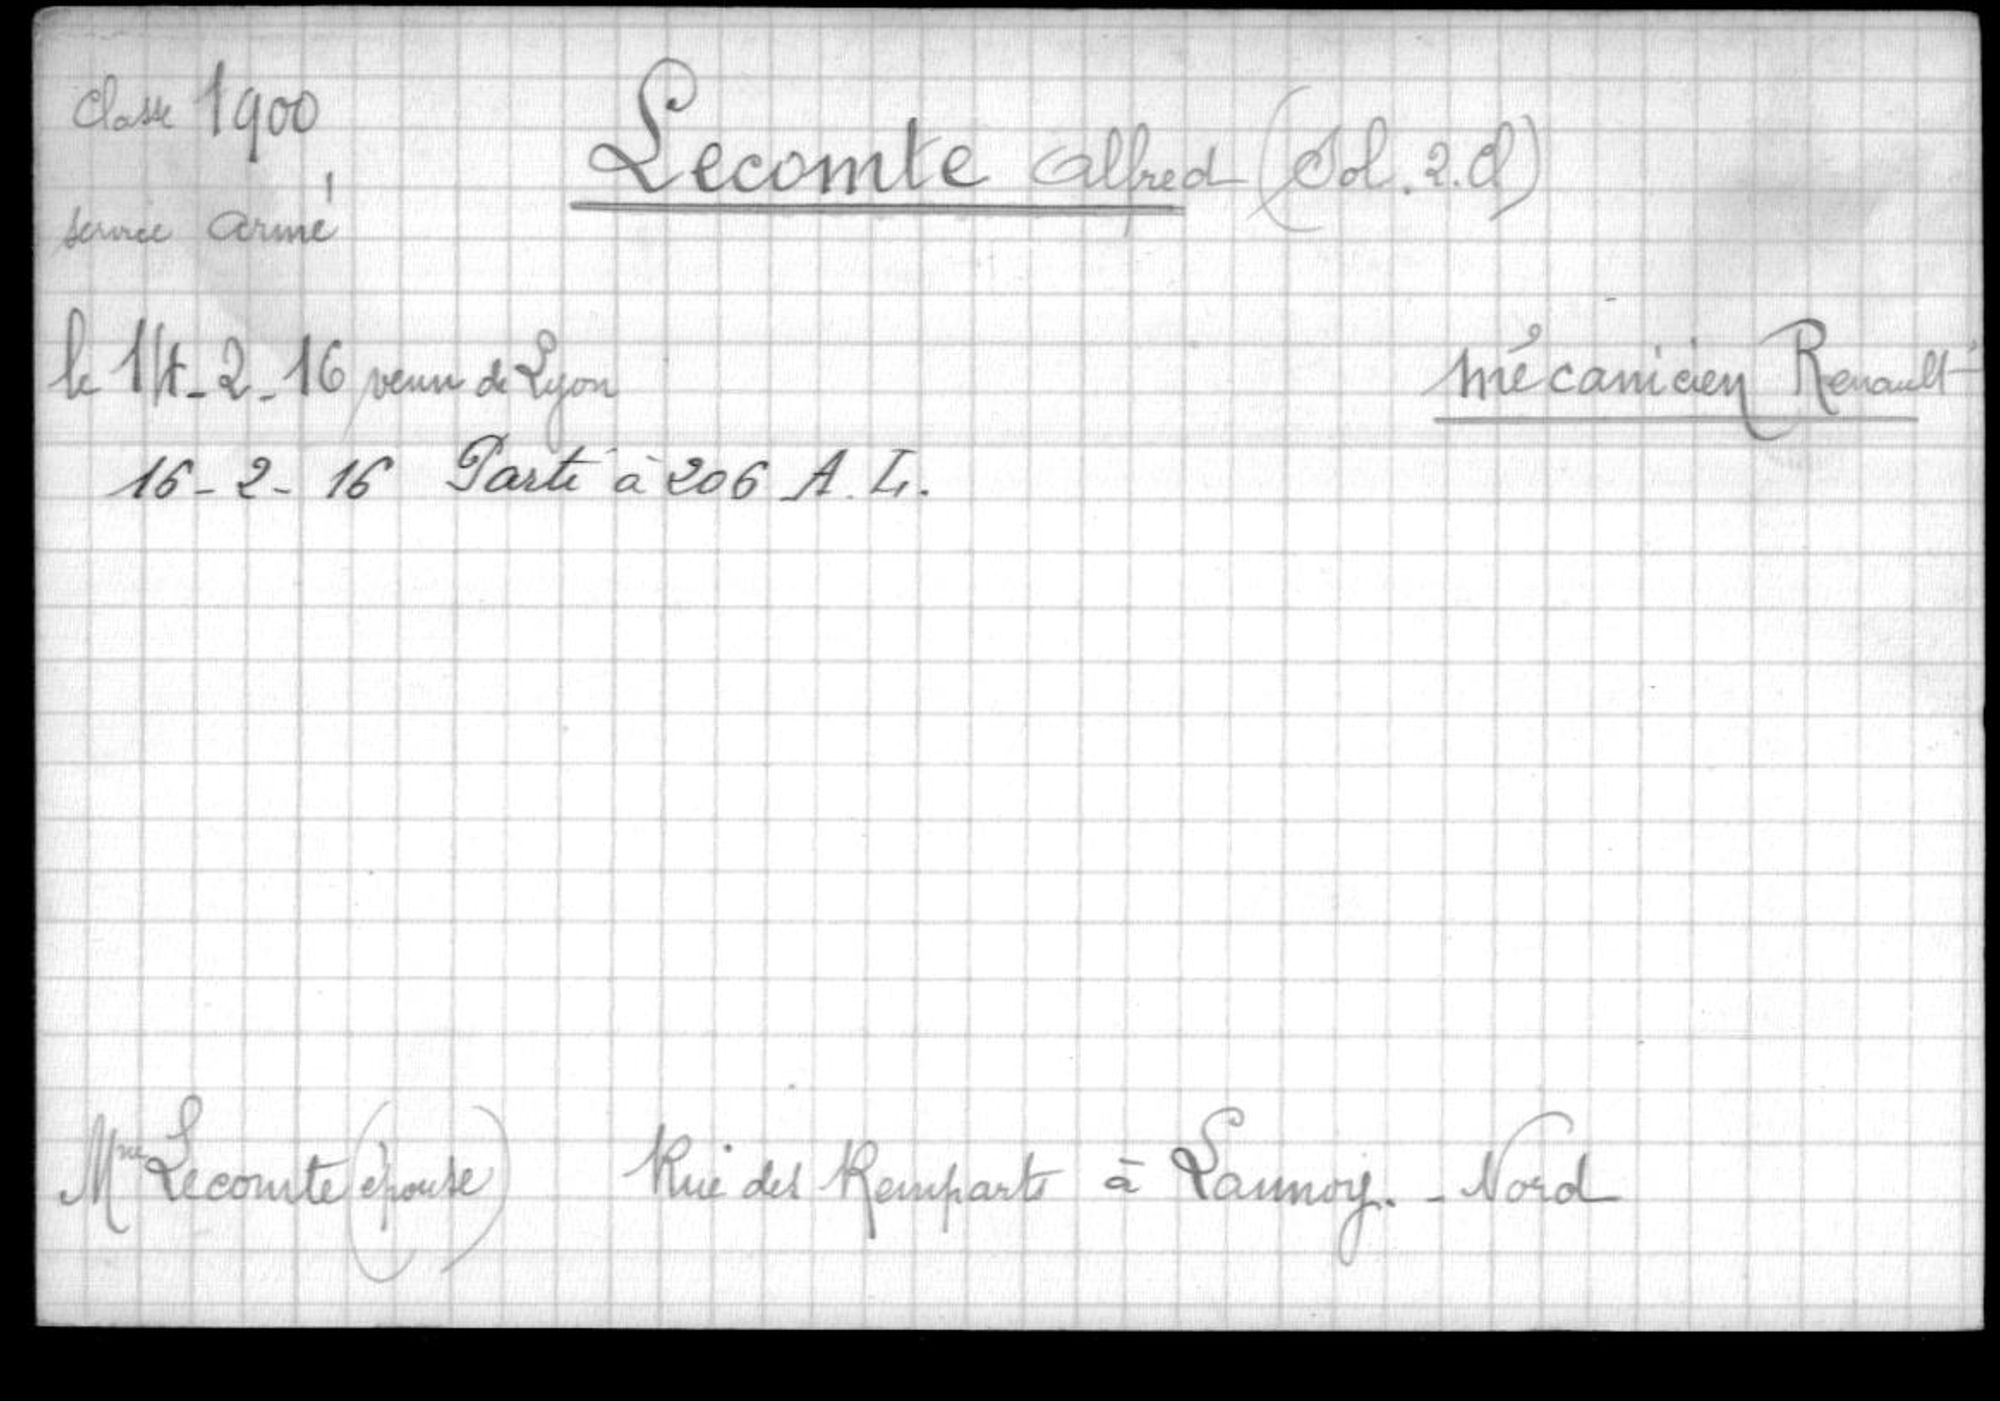 Classe 1900
Lecomte Alfred (Sol. 2. Cl)
service armé
le 14-2-16 venu de Lyon
mécanicien Renault
16-2-16 Parti à 206 A. L.
Mme Lecomte (épouse) Rue des Remparts à Lannoy. - Nord